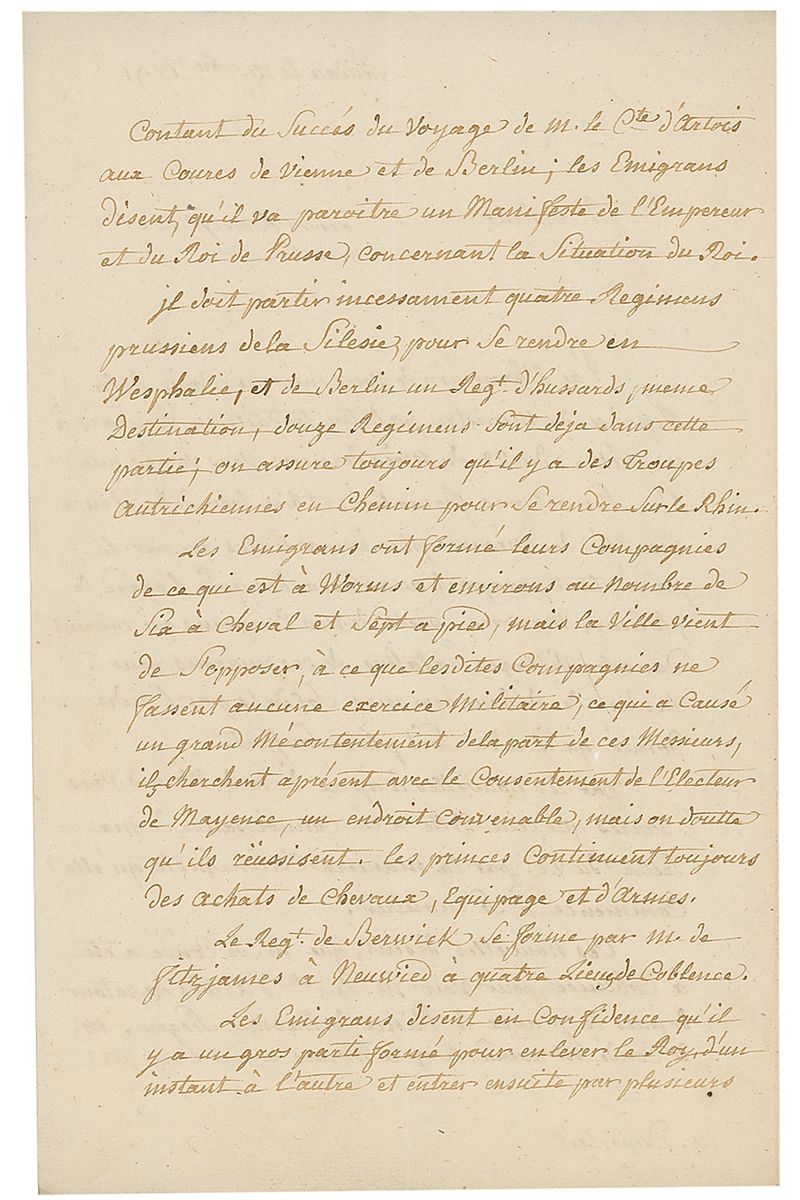 Contant du Succés du Voyage de M. le Cte d'Artois
aux Coures de Vienne et de Berlin; les Emigrans
disent, qu'il va paroitre un Manifeste de l'Empereur
et du Roi de Prusse, concernant la Situation du Roi.
jl doit partir incessament quatre Regimens
prussiens dela Silesie, pour Se rendre en
Wesphalie, et de Berlin un Regt. d'hussards, meme
Destination, douze Regimens Sont deja dans cette
partie; on assure toujours qu'il y a des Troupes
autrichiennes en Chemin pour Se rendre Sur le Rhin.
Les Emigrans ont formé leurs Compagnies
de ce qui est à Worms et environs au Nombre de
Six à Cheval et Sept a pied, mais la Ville vient
de S'opposer, à ce que lesdites Compagnies ne
fassent aucune exercice Militaire, ce qui a Causé
un grand Mécontentement dela part de ces Messieurs,
ils cherchent aprésent avec le Consentement de l'Electeur
de Mayence, un endroit Convenable, mais on doutte
qu'ils rëüssisent. les princes Continuent toujours
des achats de Chevaux, Equipage et d'Armes.
Le Regt. de Berwick Se forme par M. de
fitzjames à Neuwied à quatre Lieuz de Coblence.
Les Emigrans disent en Confidence qu'il
y a un gros parti formé pour enlever le Roy, d'un
instant à l'autre et entrer ensuite par plusieurs